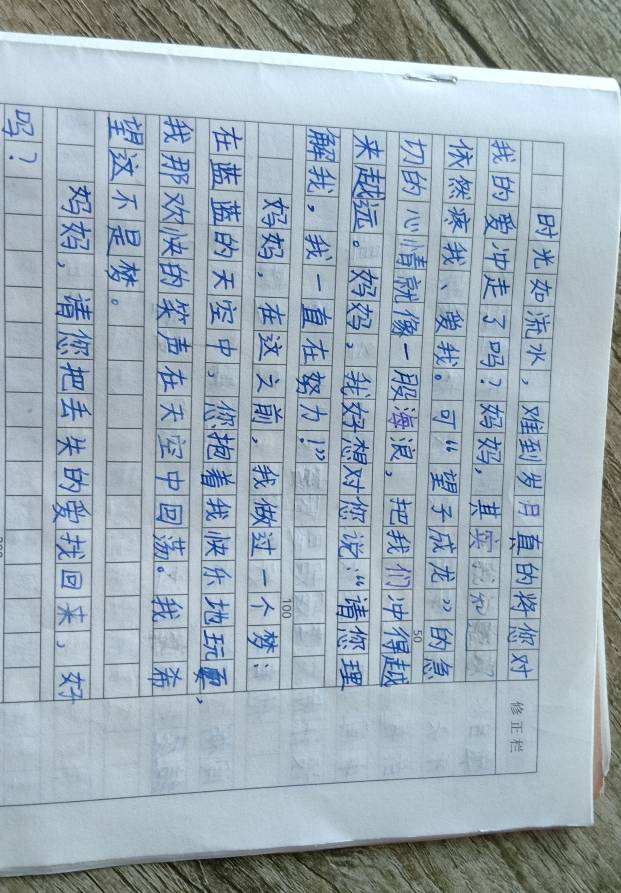 时光如流水，难到岁月真的将您对
我的爱冲走了吗？妈妈，其实
依然疼我、爱我。可“望子成龙”的急
切的心情就像一股海浪，把我们冲得越
来越远。妈妈，我好想对您说：“请您理
解我，我一直在努力！”
妈妈，在这之前，我做过一个梦：
在蓝蓝的天空中，您抱着我快乐地玩耍，
我那欢快的笑声在天空中回荡。我希
望这不是梦。
妈妈，请您把丢失的爱找回来，好
吗？
修正栏
50
100